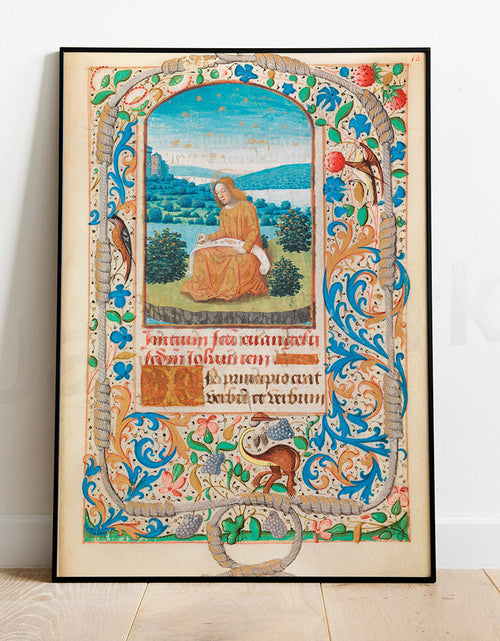 13
Inicium sci euangelii
scdm Iohannem
In principio erat
verbum et verbum